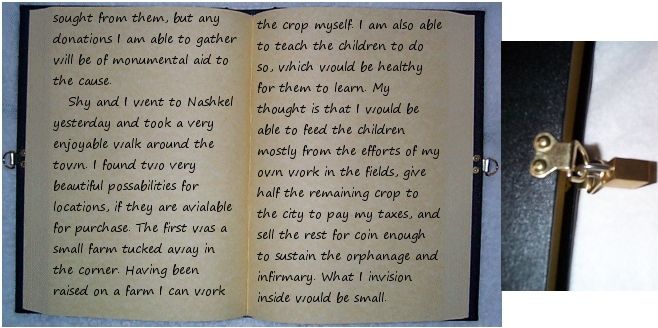 sought from them, but any
donations I am able to gather
will be of monumental aid to
the cause.
Shy and I went to Nashkel
yesterday and took a very
enjoyable walk around the
town. I found two very
beautiful possabilities for
locations, if they are avialable
for purchase. The first was a
small farm tucked away in
the corner. Having been
raised on a farm I can work
the crop myself. I am also able
to teach the children to do
so, which would be healthy
for them to learn. My
thought is that I would be
able to feed the children
mostly from the efforts of my
own work in the fields, give
half the remaining crop to
the city to pay my taxes, and
sell the rest for coin enough
to sustain the orphanage and
infirmary. What I invision
inside would be small.